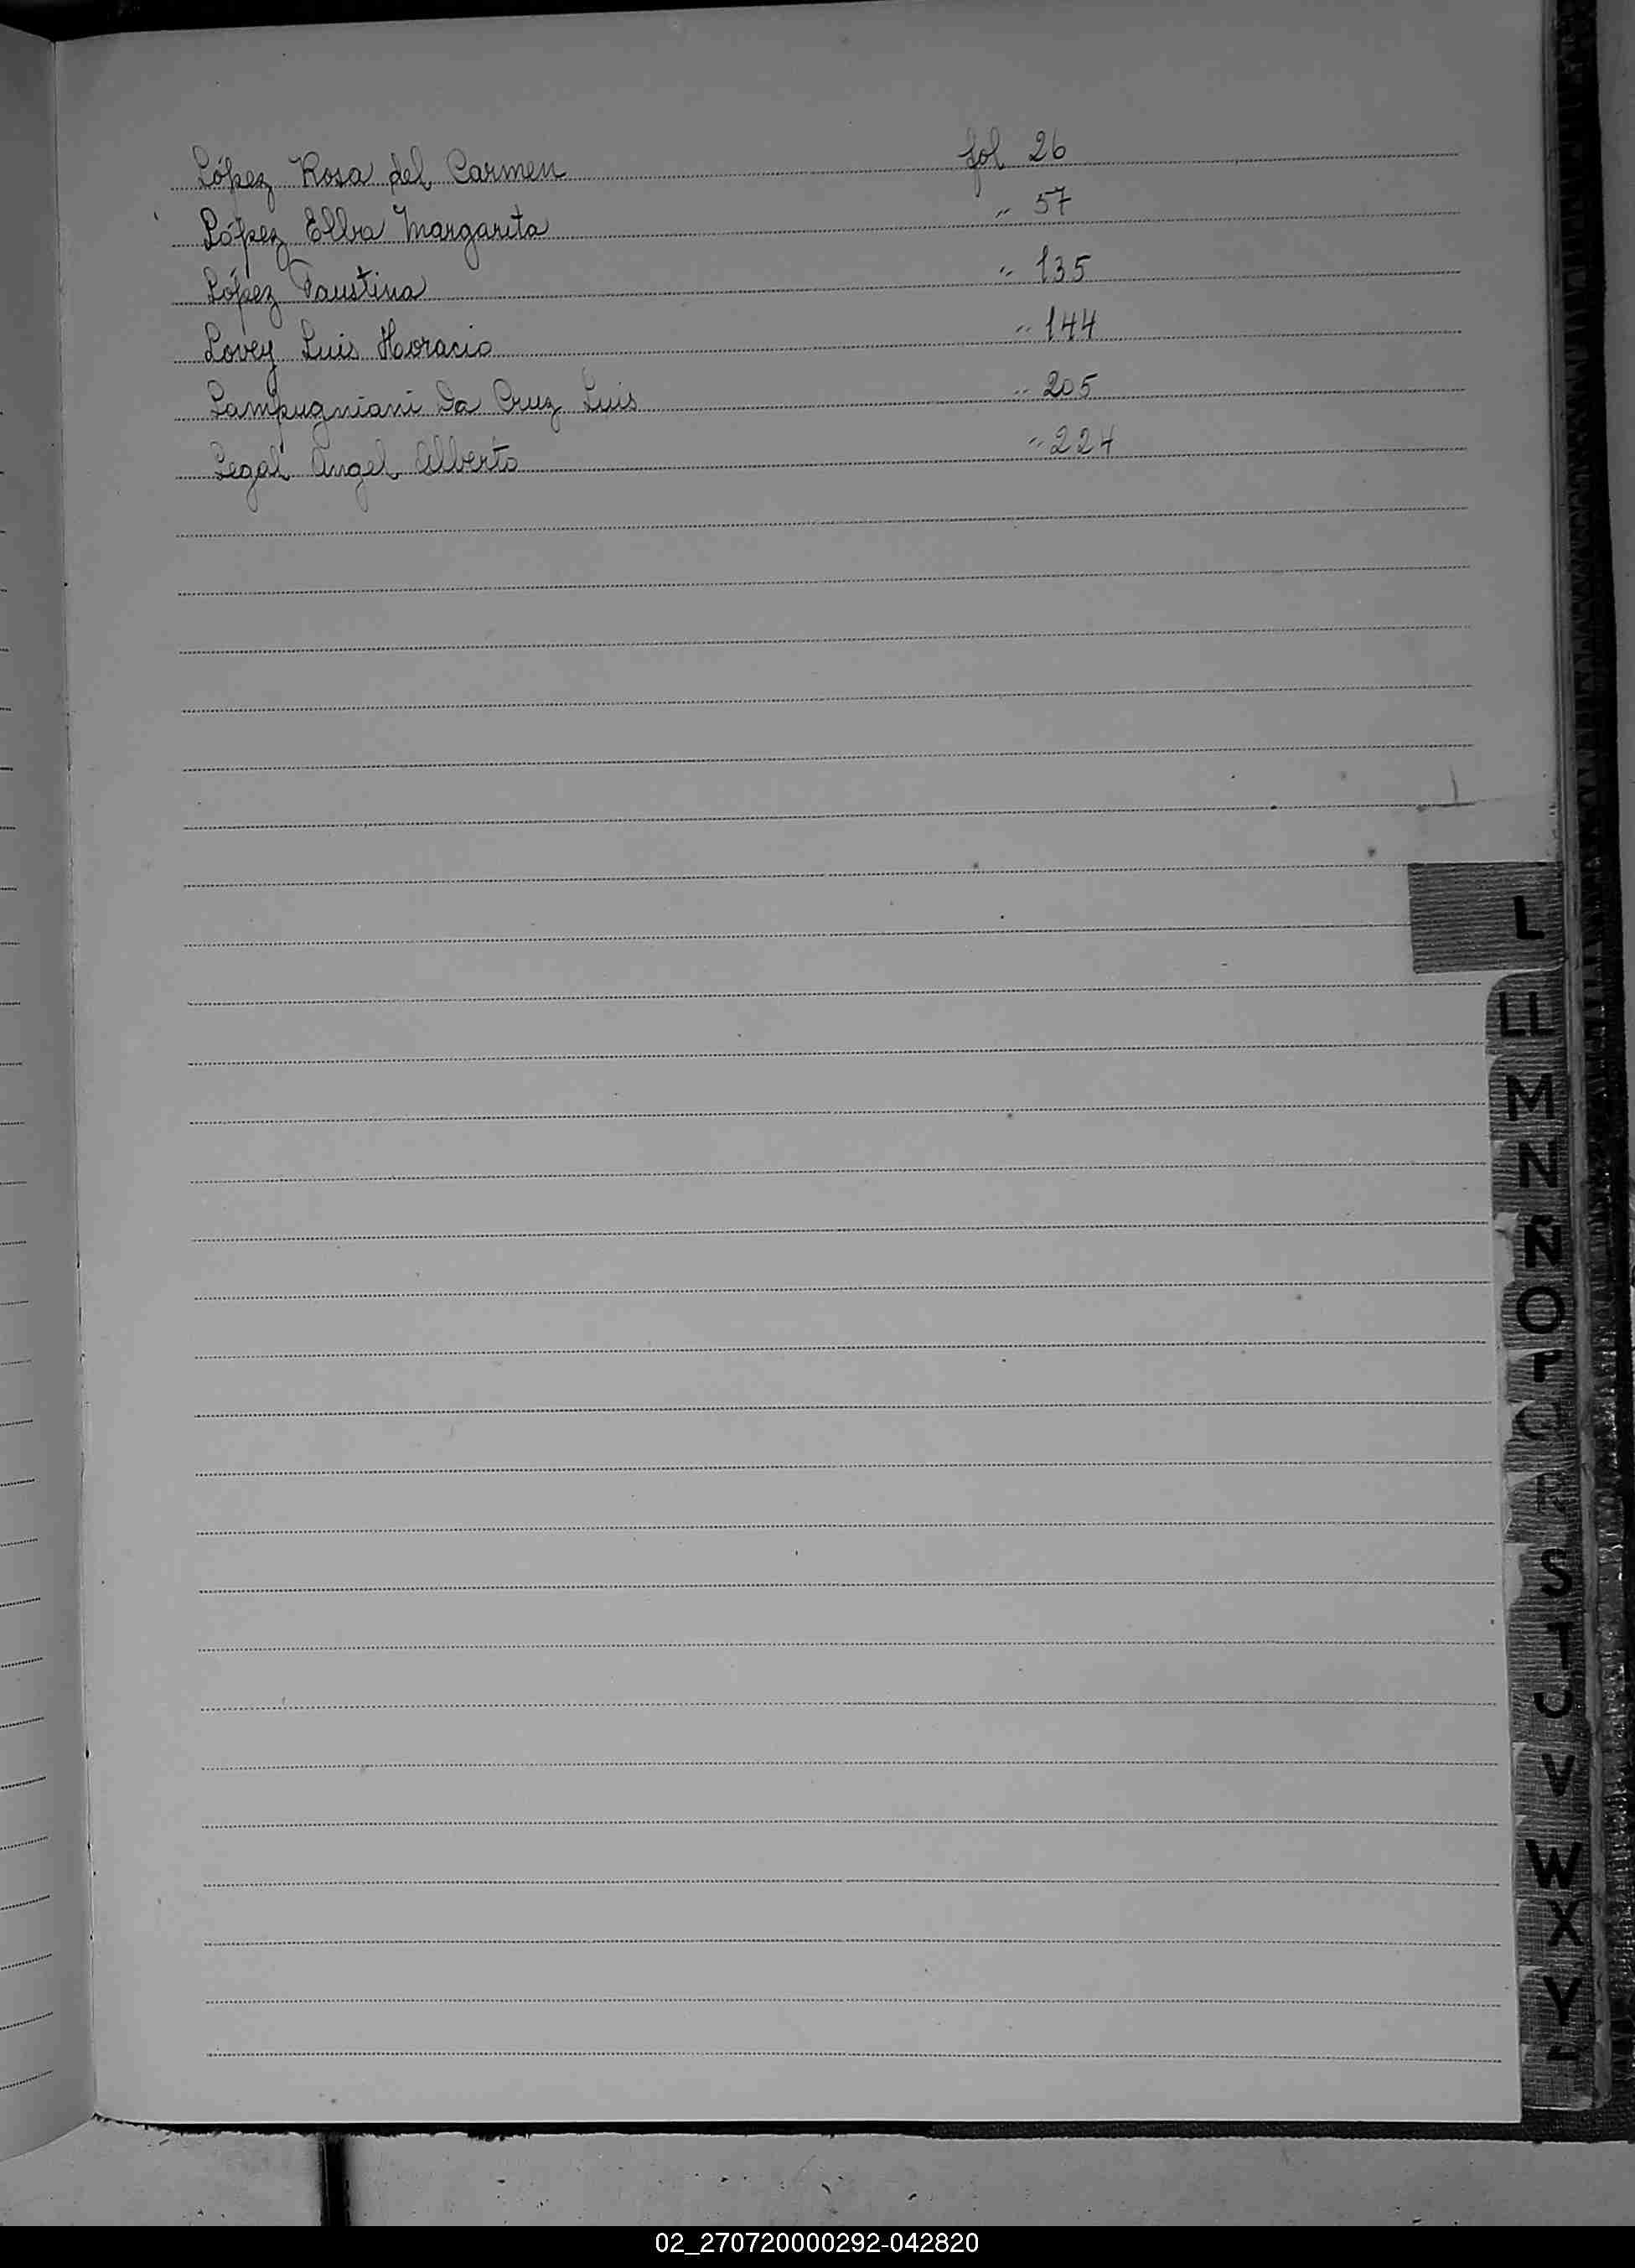 López Rosa del Carmen fol 26
López Elba Margarita " 57
López Faustina " 135
Lovey Luis Horacio " 144
Lampugniani Da Cruz Luis " 205
Legal Angel Alberto " 224
L
LL
M
N
Ñ
O
P
Q
R
S
T
U
V
W
X
Y
02_270720000292-042820